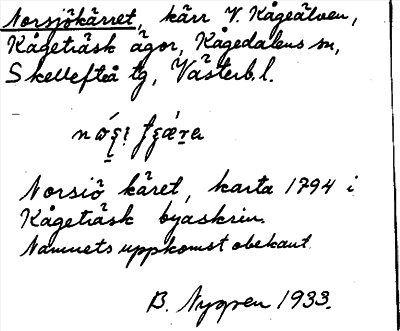 Norsjökärret, kärr V. Kågeälven,
Kågeträsk ägor, Kågedalens sn,
Skellefteå tg, Västerb. l.
Norsiö käret, karta 1794 i
Kågeträsk byaskrin.
Namnets uppkomst obekant.
B. Nygren 1933.